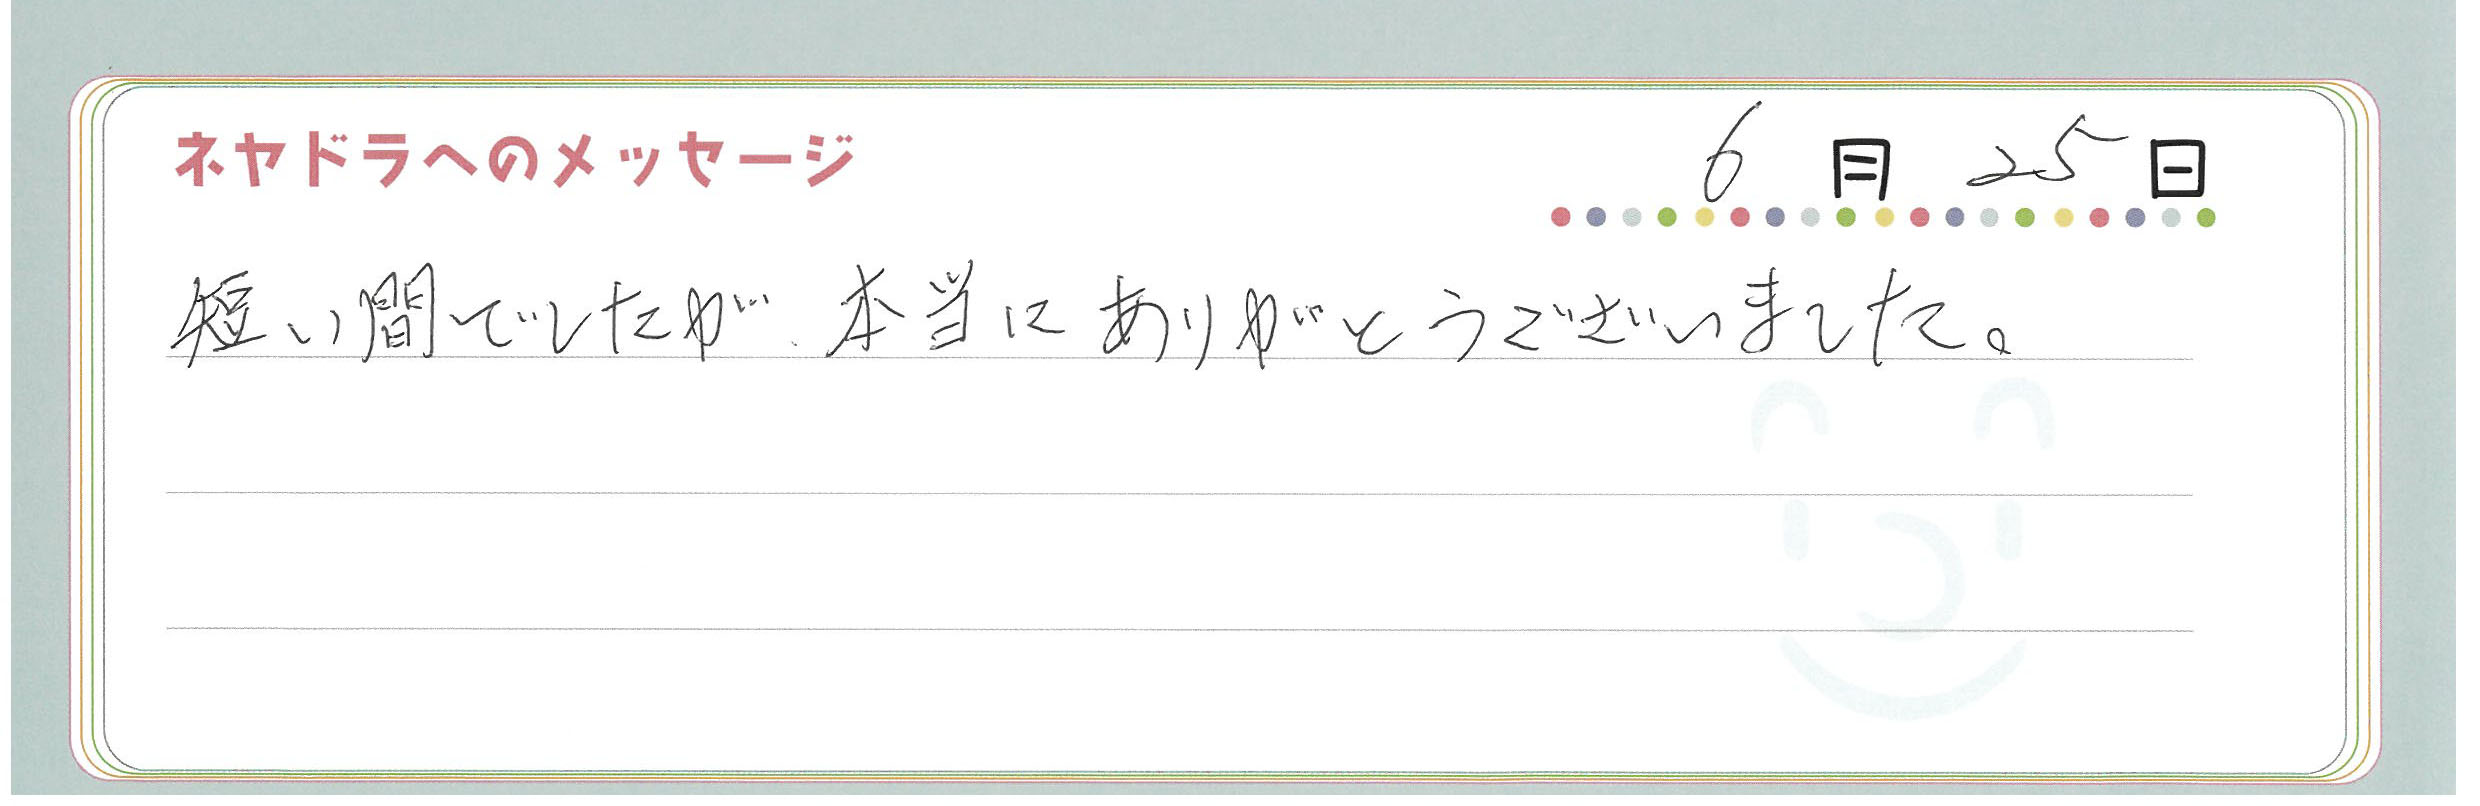 ネヤドラへのメッセージ
6月25日
短い間でしたが、本当にありがとうございました。